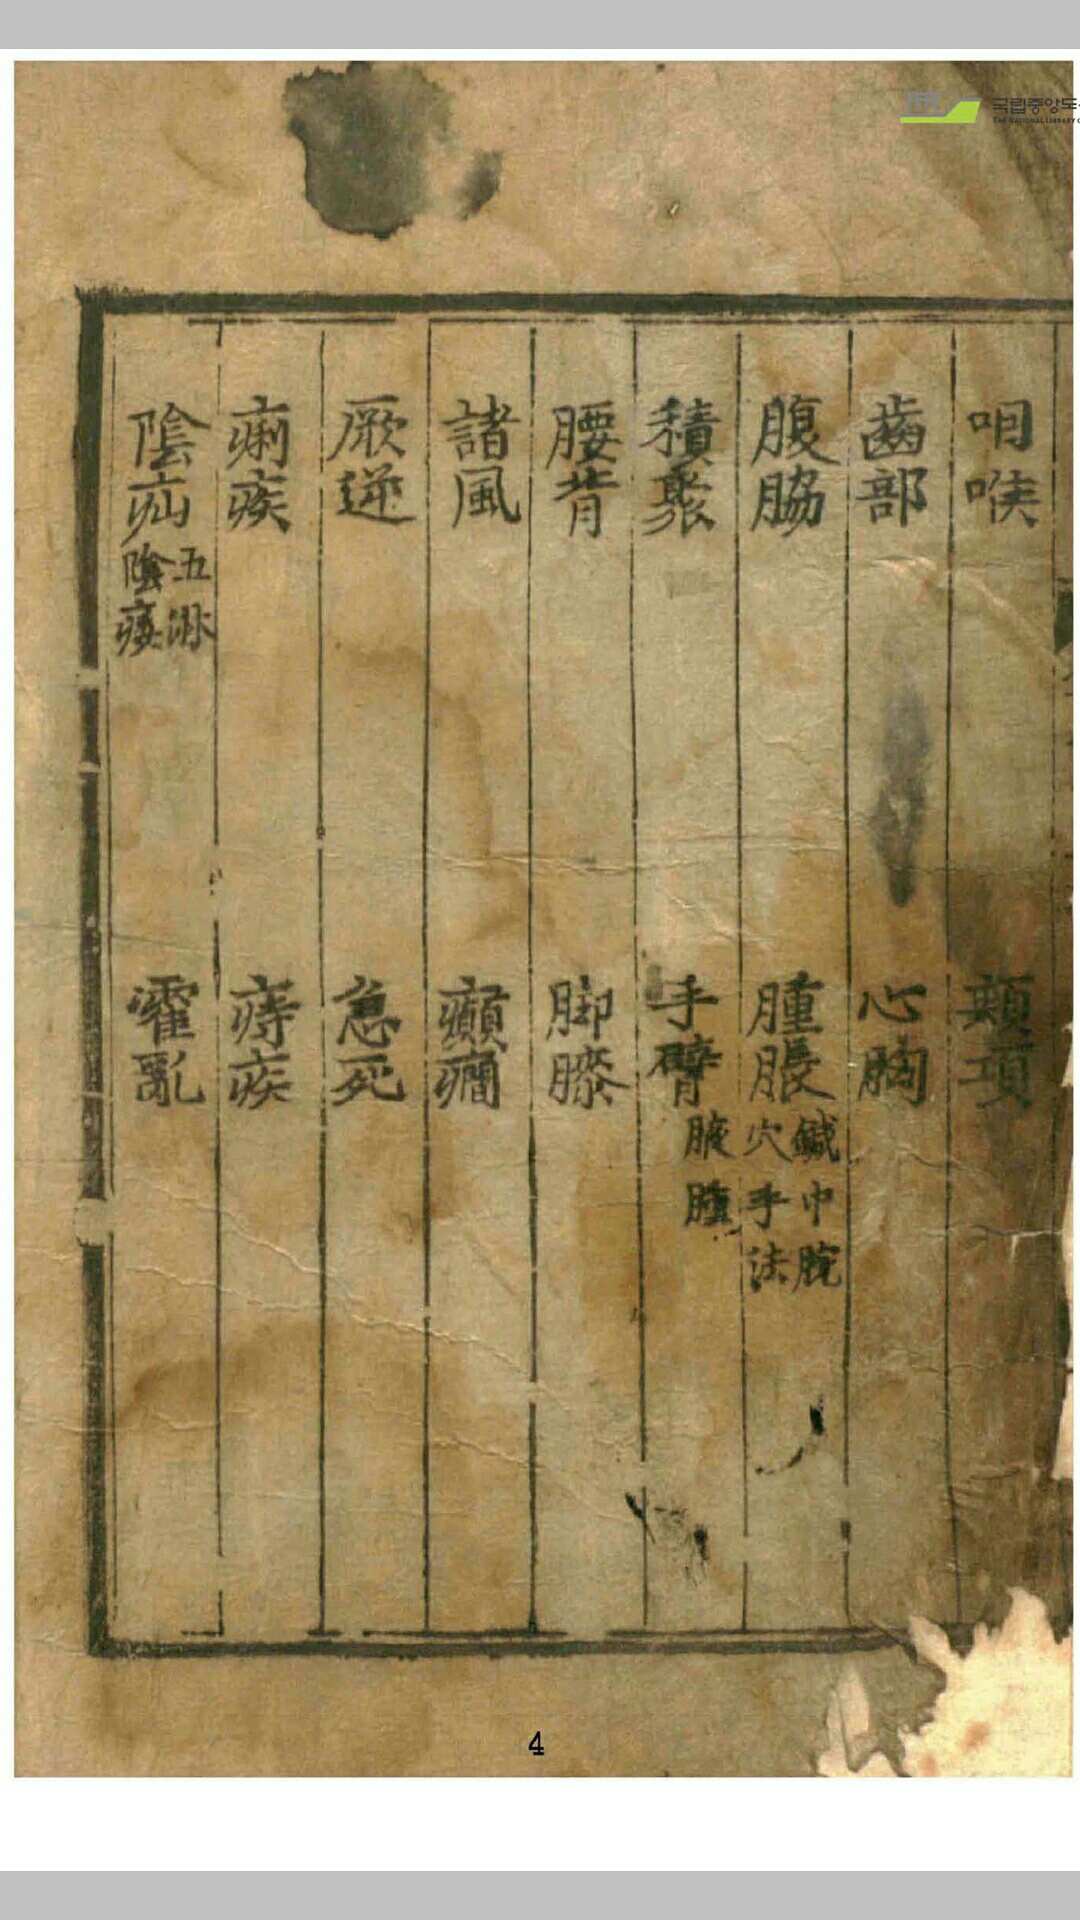 국립중앙도
THE NATIONAL LIBRARY O
咽喉 頰項
齒部 心胸
腹脇 腫脹 鍼中脘穴手法
積聚 手臂 腋腫
腰背 脚膝
諸風 癲癎
厥逆 急死
痢疾 痔疾
陰疝 五淋陰痿 霍亂
4